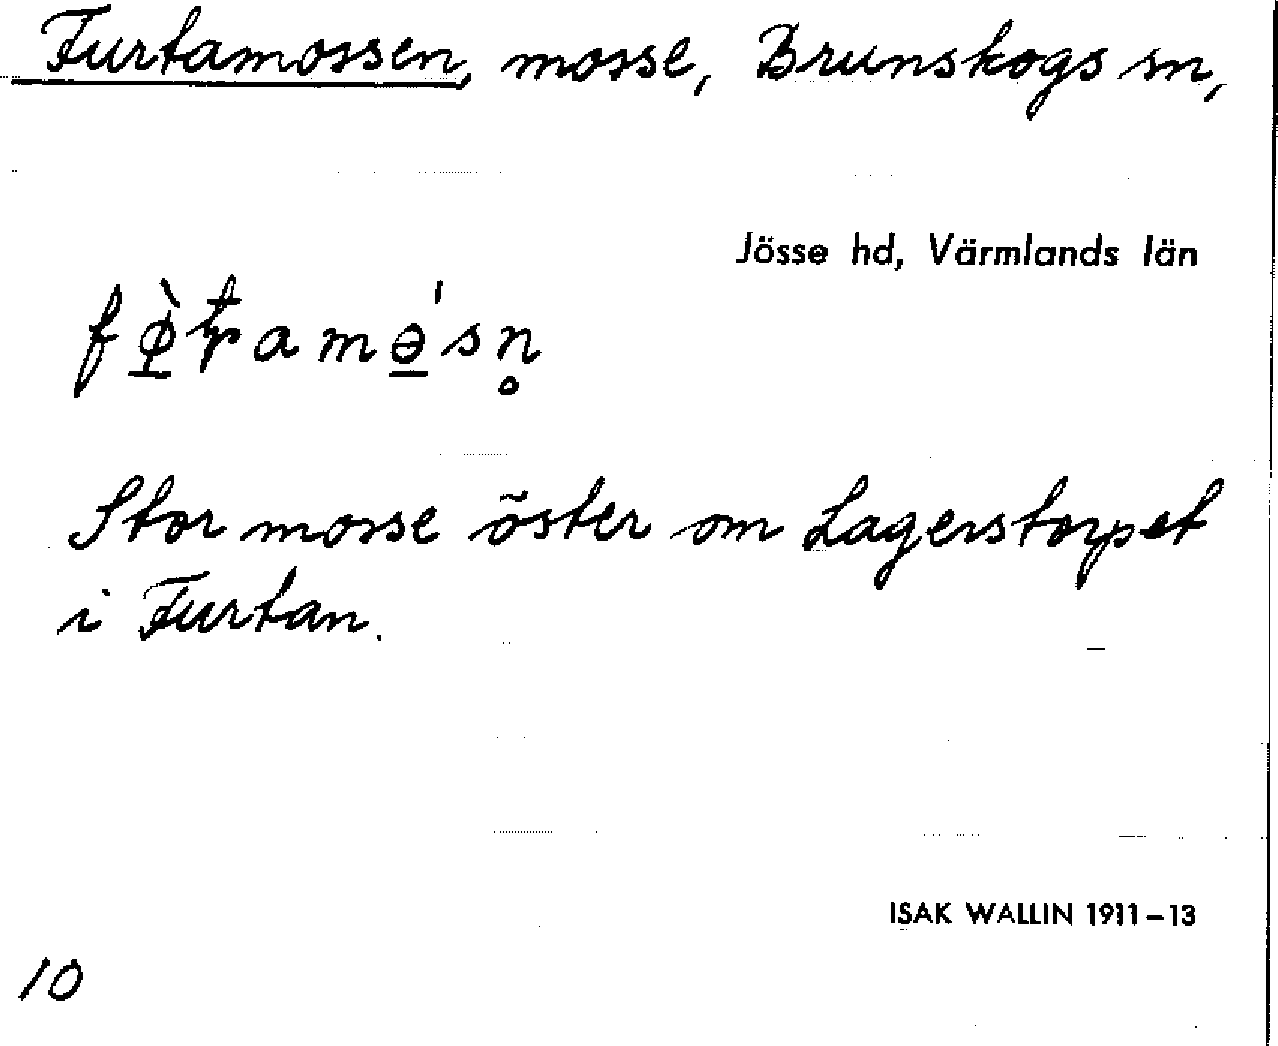 Furtamossen, mosse, Brunskogs sn,
Jösse hd, Värmlands län
Stor mosse öster om Lagerstorpet
i Furtan.
ISAK WALLIN 1911–13
10